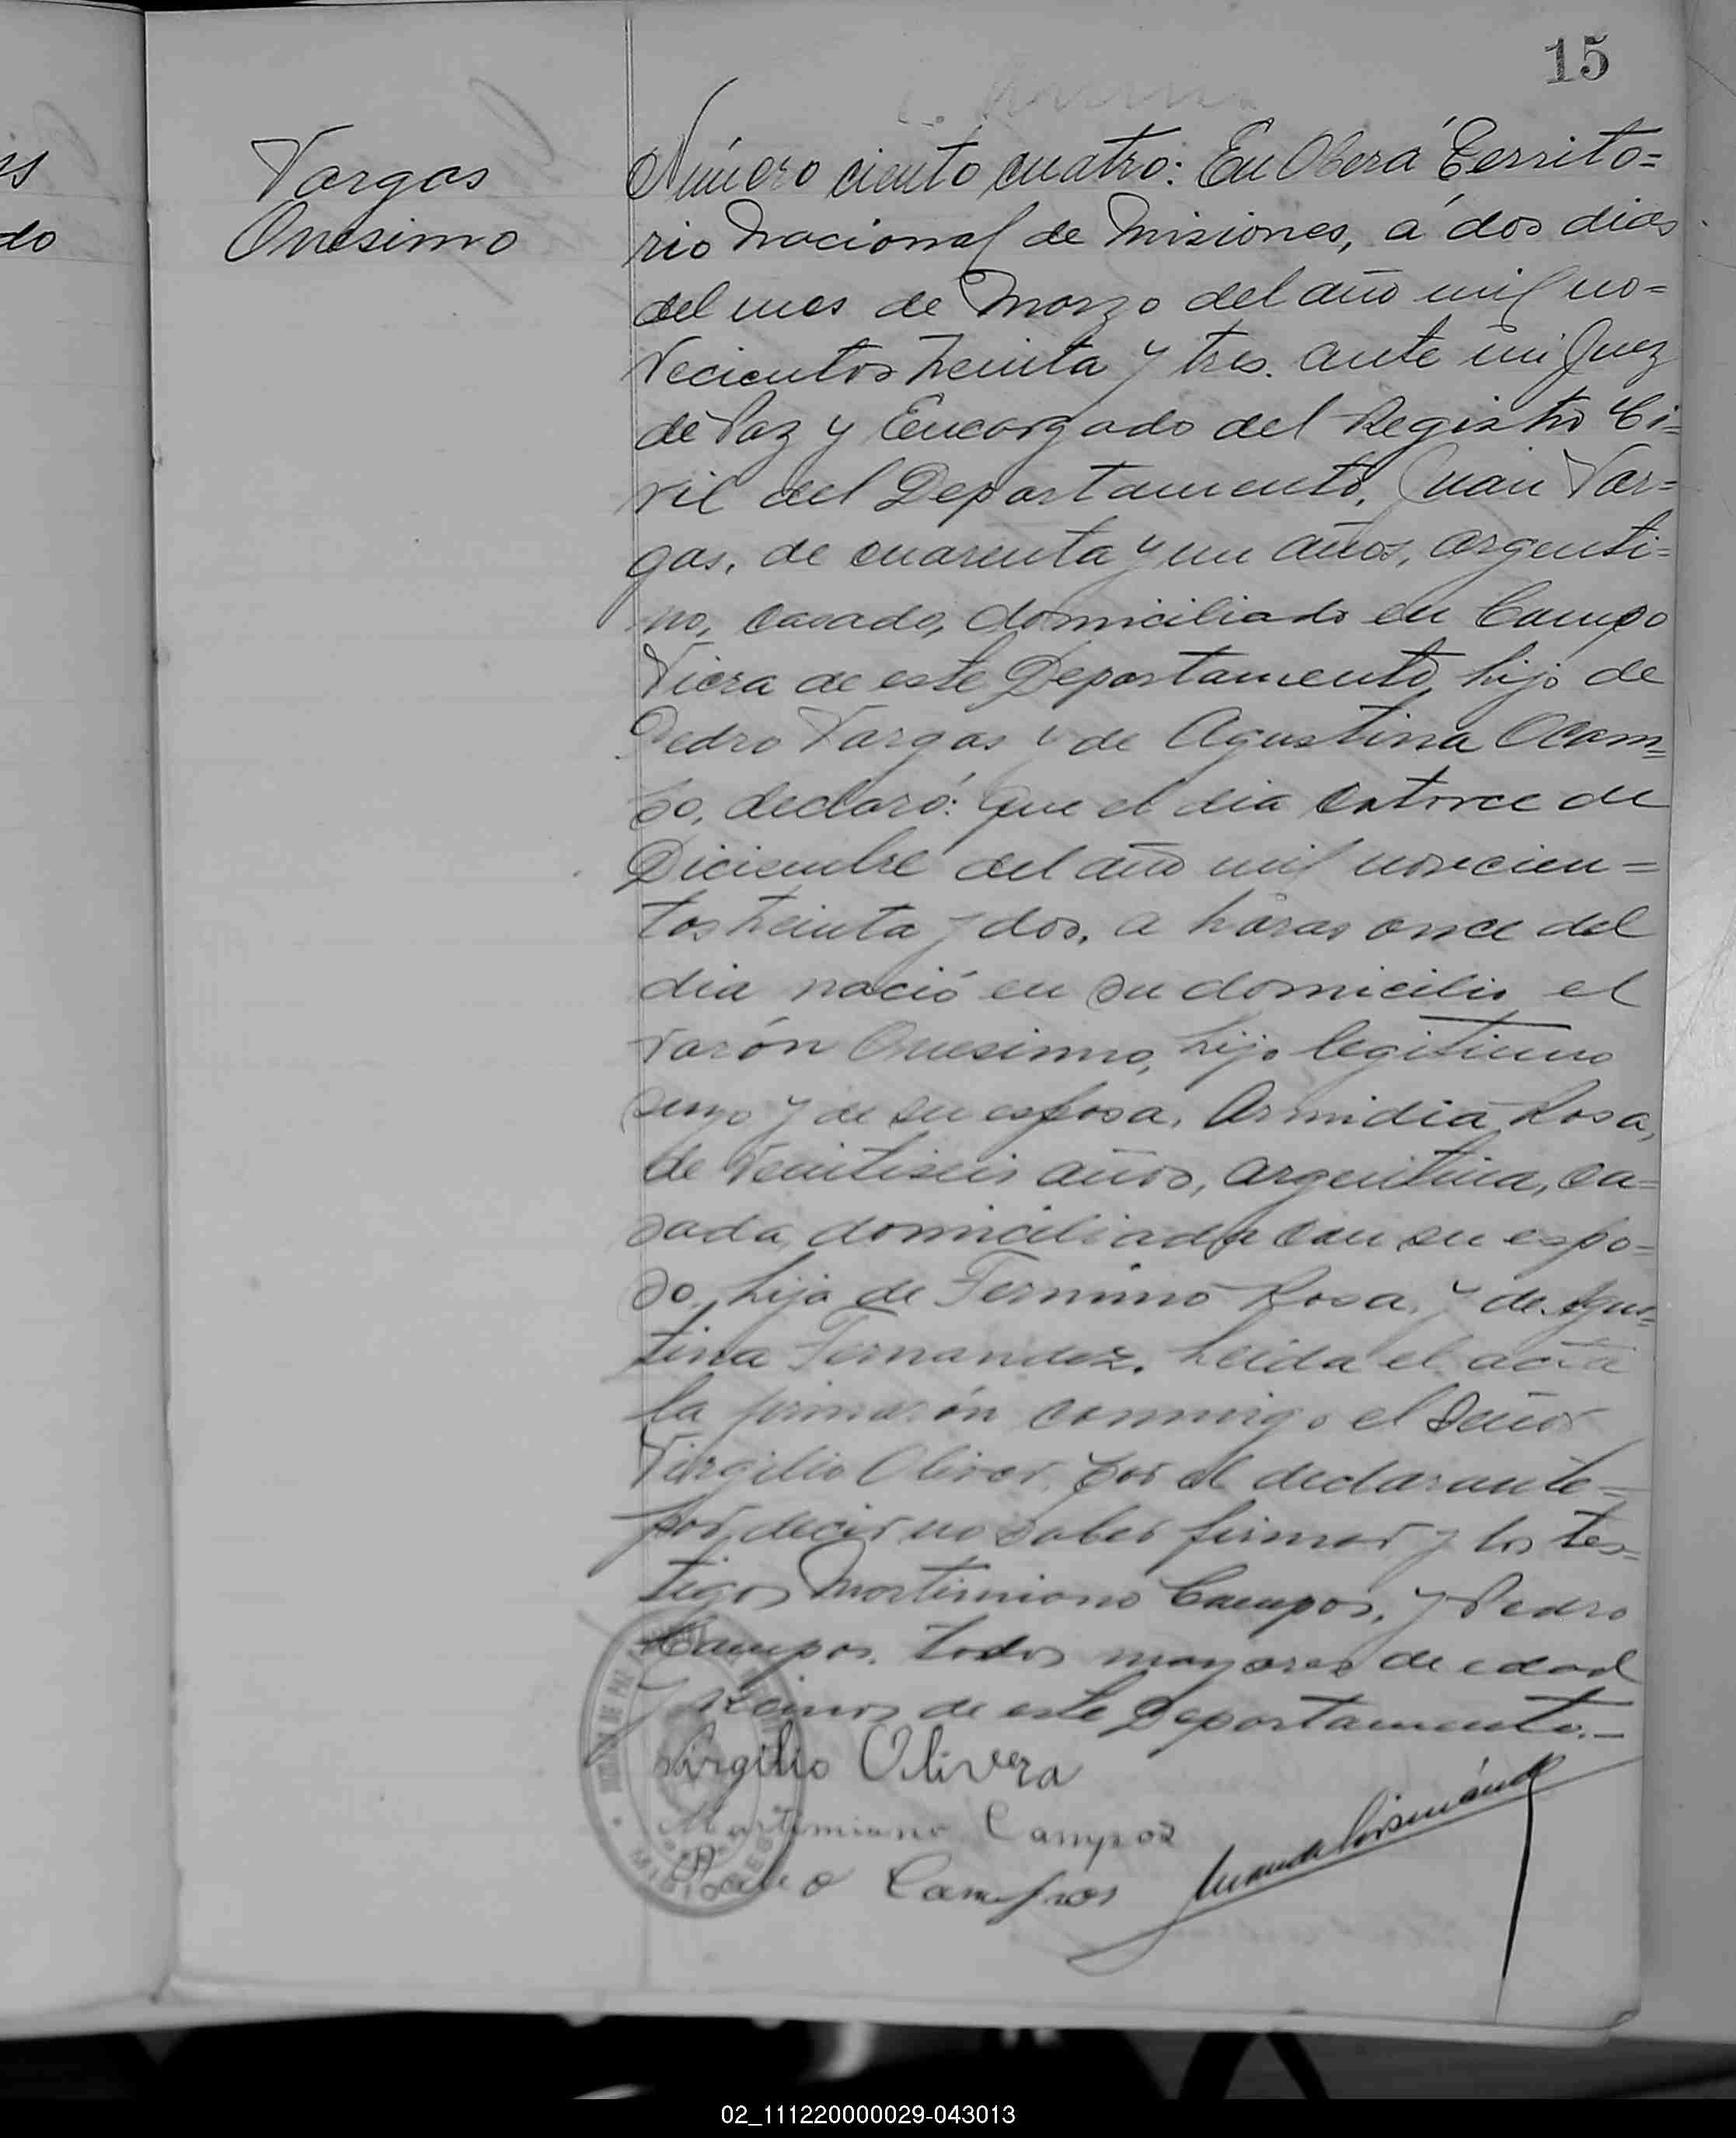 15
Vargas
Onesimo
Número ciento cuatro: En Oberá Territo=
rio Nacional de Misiones, á dos dias
del mes de Marzo del año mil no=
vecientos treinta y tres. ante mi Juez
de Paz y Encargado del Registro Ci=
vil del Departamento, Juan Var=
gas, de cuarenta y un años, argenti=
no, casado, domiciliado en Campo
Viera de este Departamento, hijo de
Pedro Vargas y de Agustina Ocam=
po, declaró: Que el dia catorce de
Diciembre del año mil novecien=
tos treinta y dos, a horas once del
dia nació en su domicilio el
varón Onesimo, hijo legitimo
suyo y de su esposa, Armidia Rosa,
de veintiseis años, argentina, ca=
sada, domiciliada con su espo=
so, hija de Fermino Rosa, y de Agus=
tina Fernandez. Leida el acta
la firmarón conmigo el Señor
Virgilio Oliver, por el declarante=
por decir no saber firmar y los tes=
tigos Martimiano Campos, y Pedro
Campos. todos mayores de edad
y vecinos de este Departamento.—
Virgilio Olivera
Martimiano Campos
Pedro Campos
JUZGADO DE PAZ
MISIONES
02_111220000029-043013